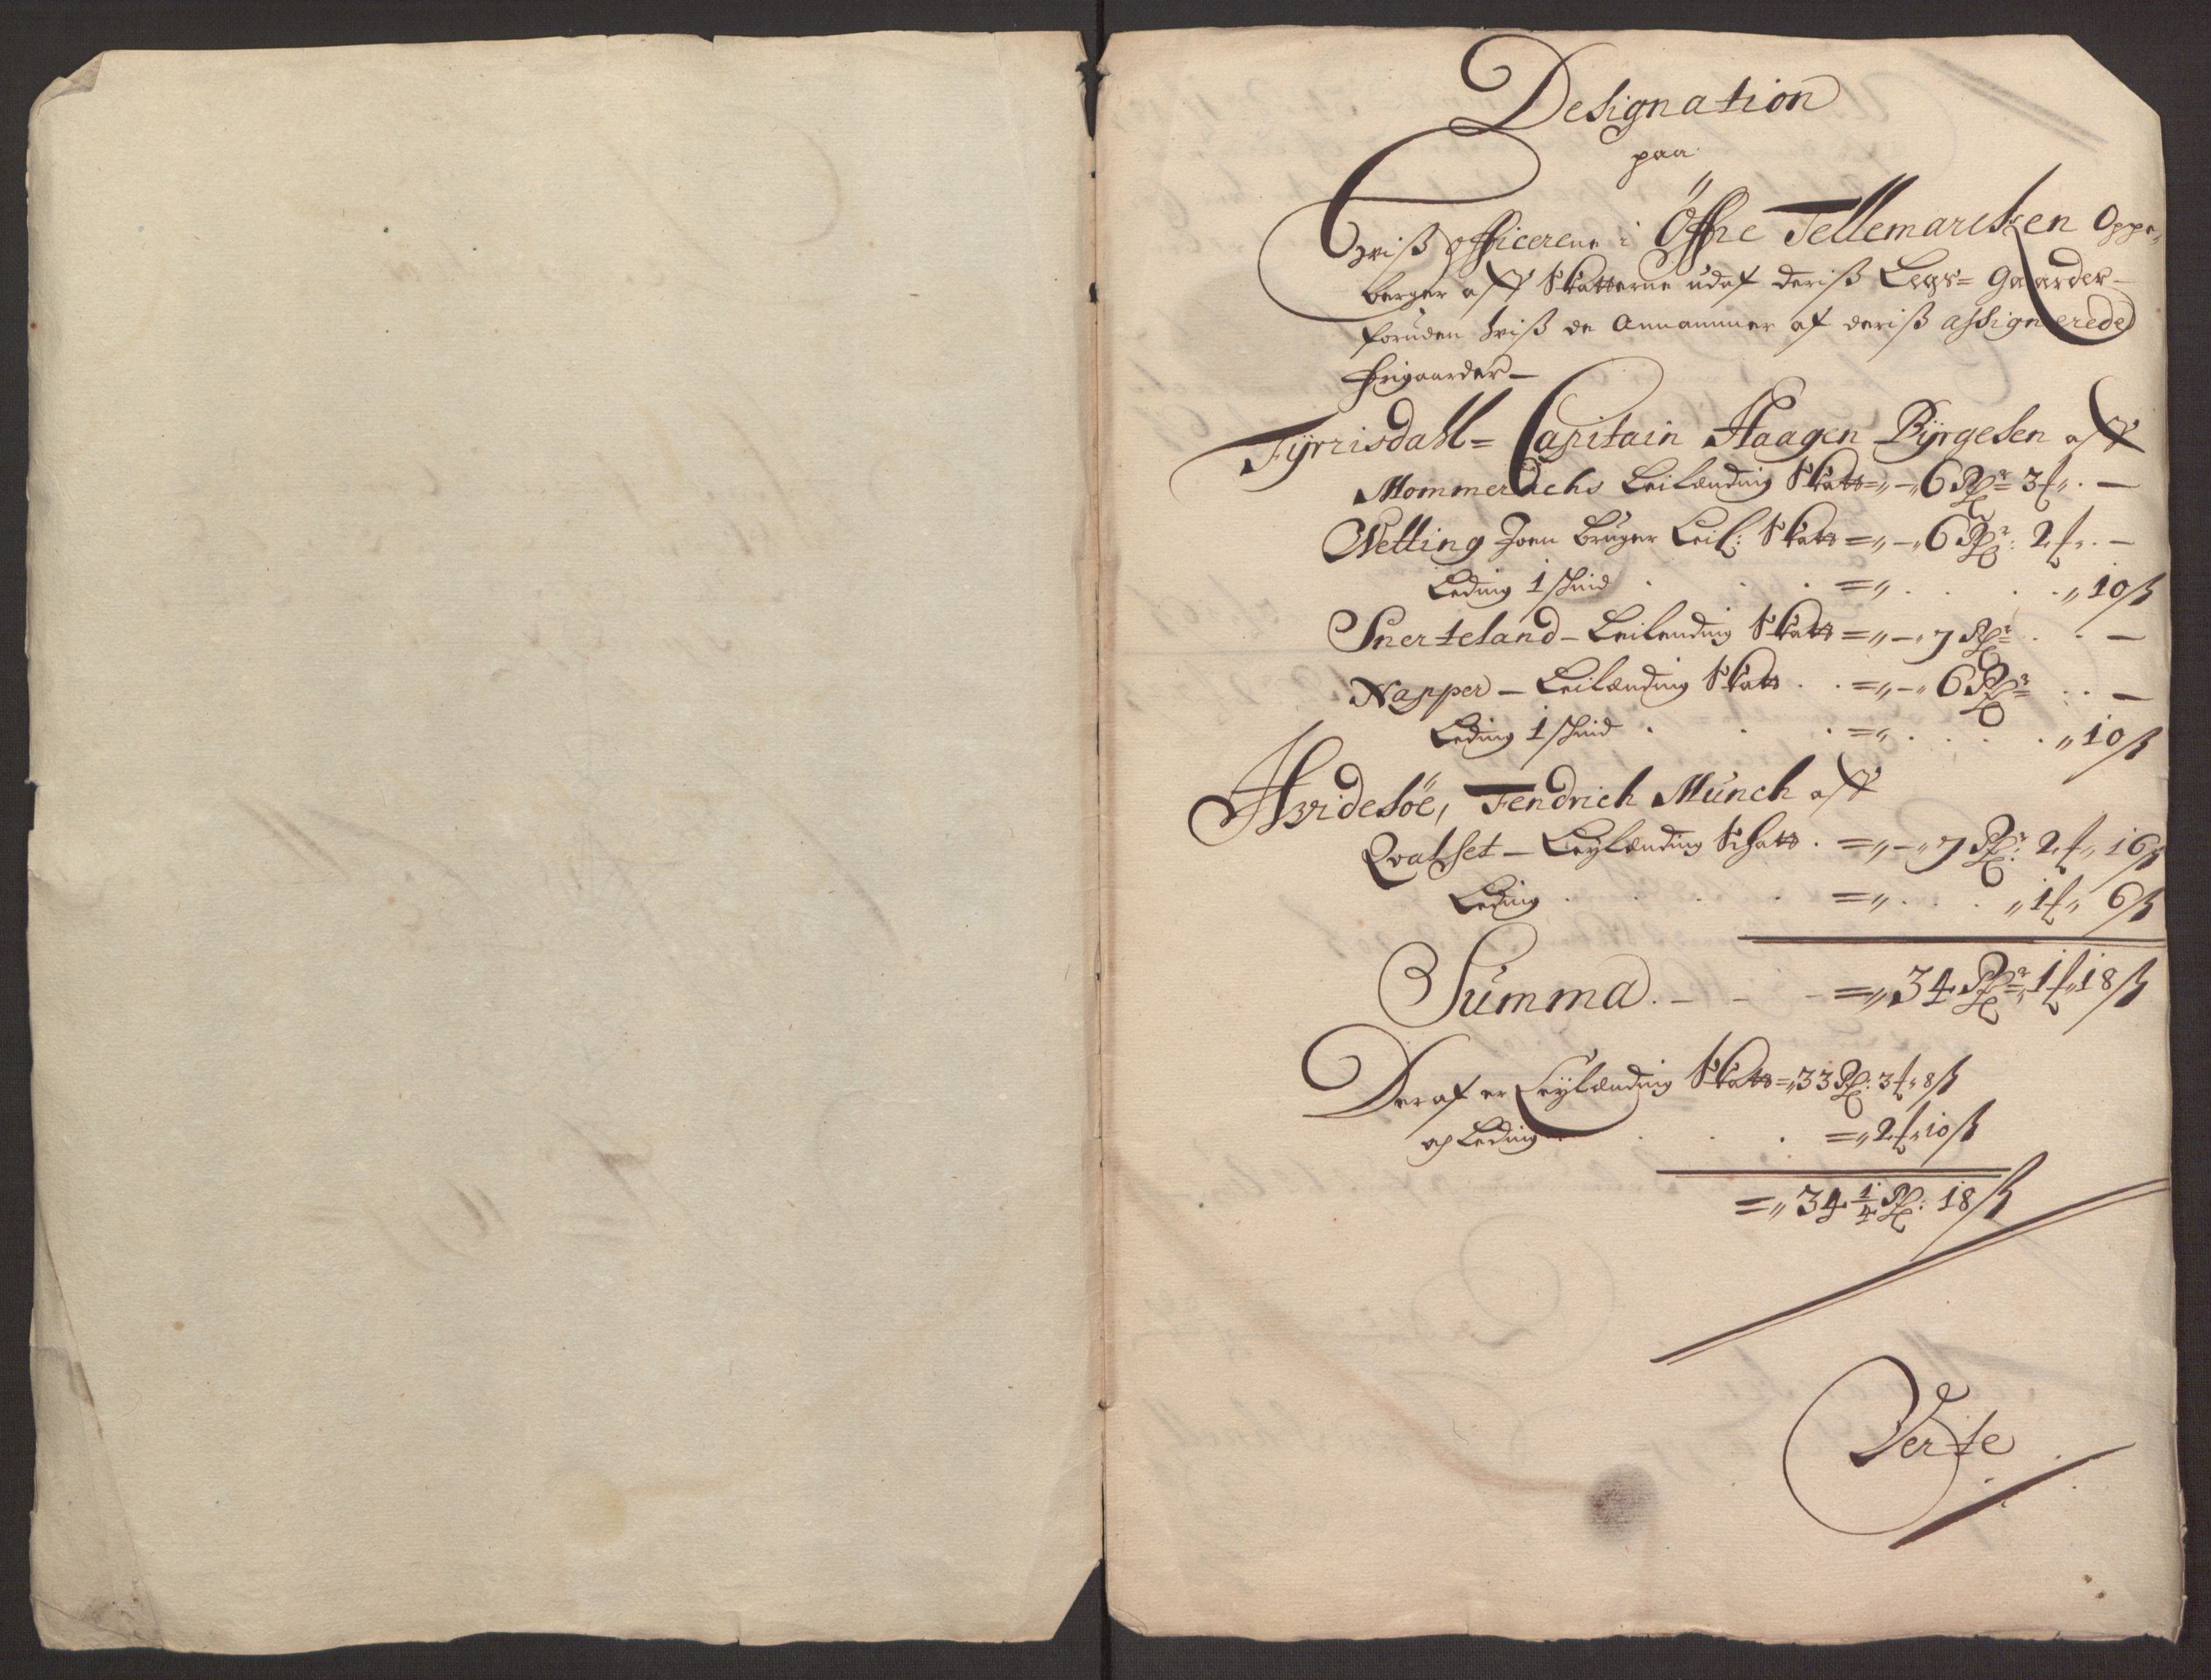 Designation
paa
Hvis officererne i Öffre Tellemarcken Oppe-
berger aff Skatterne udaf deris Legs= Gaarder
foruden hvis de Annammer af deris assignerede
frigaarder
Tÿrrisdahl= Capitain Haagen Bÿrgesen aff
Mommerachs Leilænding Skatt =„-„ 6 Rdr= 3 f„ . -
Vetting Joen Bruger Leil: Skatt =„-„ 6 Rdr: 2 f„ . -
Leding 1 skind . . . =„ . . . . „ 10 ß
Snerteland - Leilending Skatt =„-„ 7 Rdr= . . -
Napper - Leilænding Skatt . . =„-„ 6 Rdr= . . -
Leding 1 skind . . . =„ . . . . „ 10 ß
Hvidesöe, Fendrich Münch aff
Qvalset - Leÿlænding Schatt . =„-„ 7 Rdr: 2 f„ 16 ß
Leding . . . . =„ . . . „ 1 f„ 6 ß
Summa . - - - =„ 34 Rdr=„ 1 f„ 18 ß
Deraf er Leÿlænding Skatt =„ 33 Rd: 3 f„ 8 ß
og Leding . . . =„ 2 f„ 10 ß
=„ 34 1/4 Rd: 18 ß
Verte